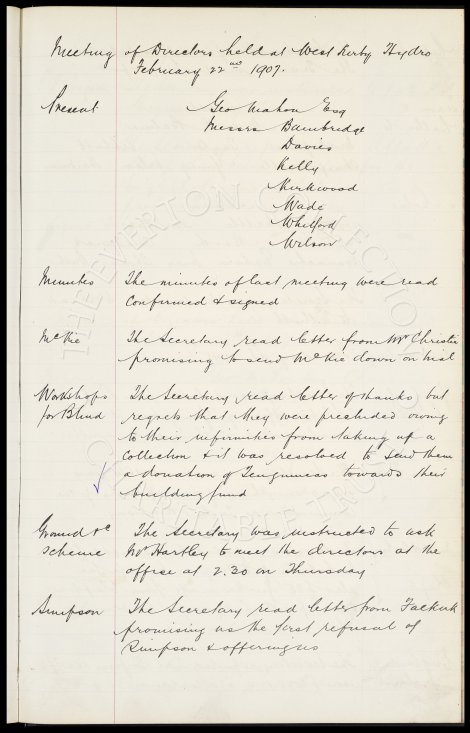 Meeting of Directors held at West Kirby Hydro
February 22nd 1907.
Present Geo Mahon Esq
Messrs Bainbridge
Davies
Kelly
Kirkwood
Wade
Whitford
Wilson
Minutes The minutes of last meeting were read
confirmed & signed
McKie The Secretary read letter from Mr Christie
promising to send McKie down on trial
Workshops The Secretary read letter of thanks, but
for Blind regrets that they were precluded owing
to their infirmities from taking up a
collection & it was resolved to send them
a donation of Ten guineas towards their
building fund
Ground &c The Secretary was instructed to ask
Scheme Mr Hartley to meet the directors at the
office at 2.30 on Thursday
Simpson The Secretary read letter from Falkirk
promising us the first refusal of
Simpson & offering us
THE EVERTON COLLECTION
CHARITABLE TRUST